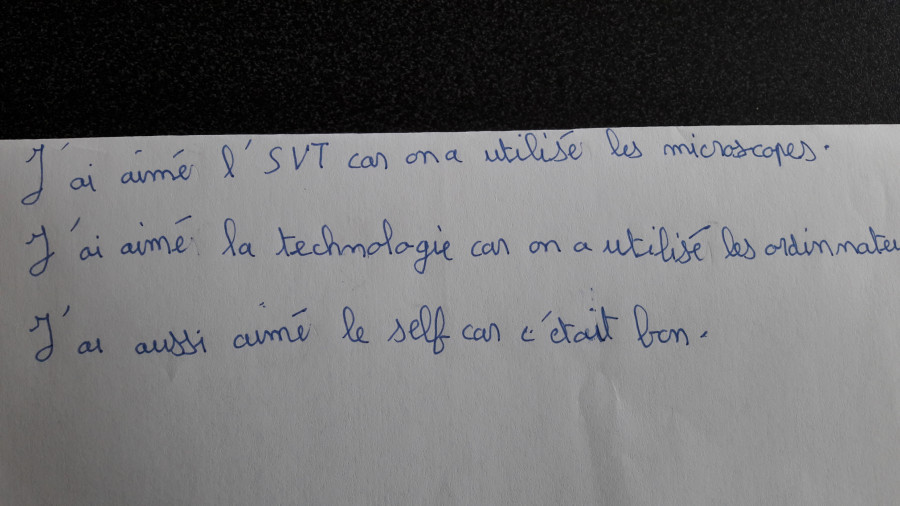 J'ai aimé l'SVT car on a utilisé les microscopes.
J'ai aimé la technologie car on a utilisé les ordinnateu
J'ai aussi aimé le self car c'était bon.